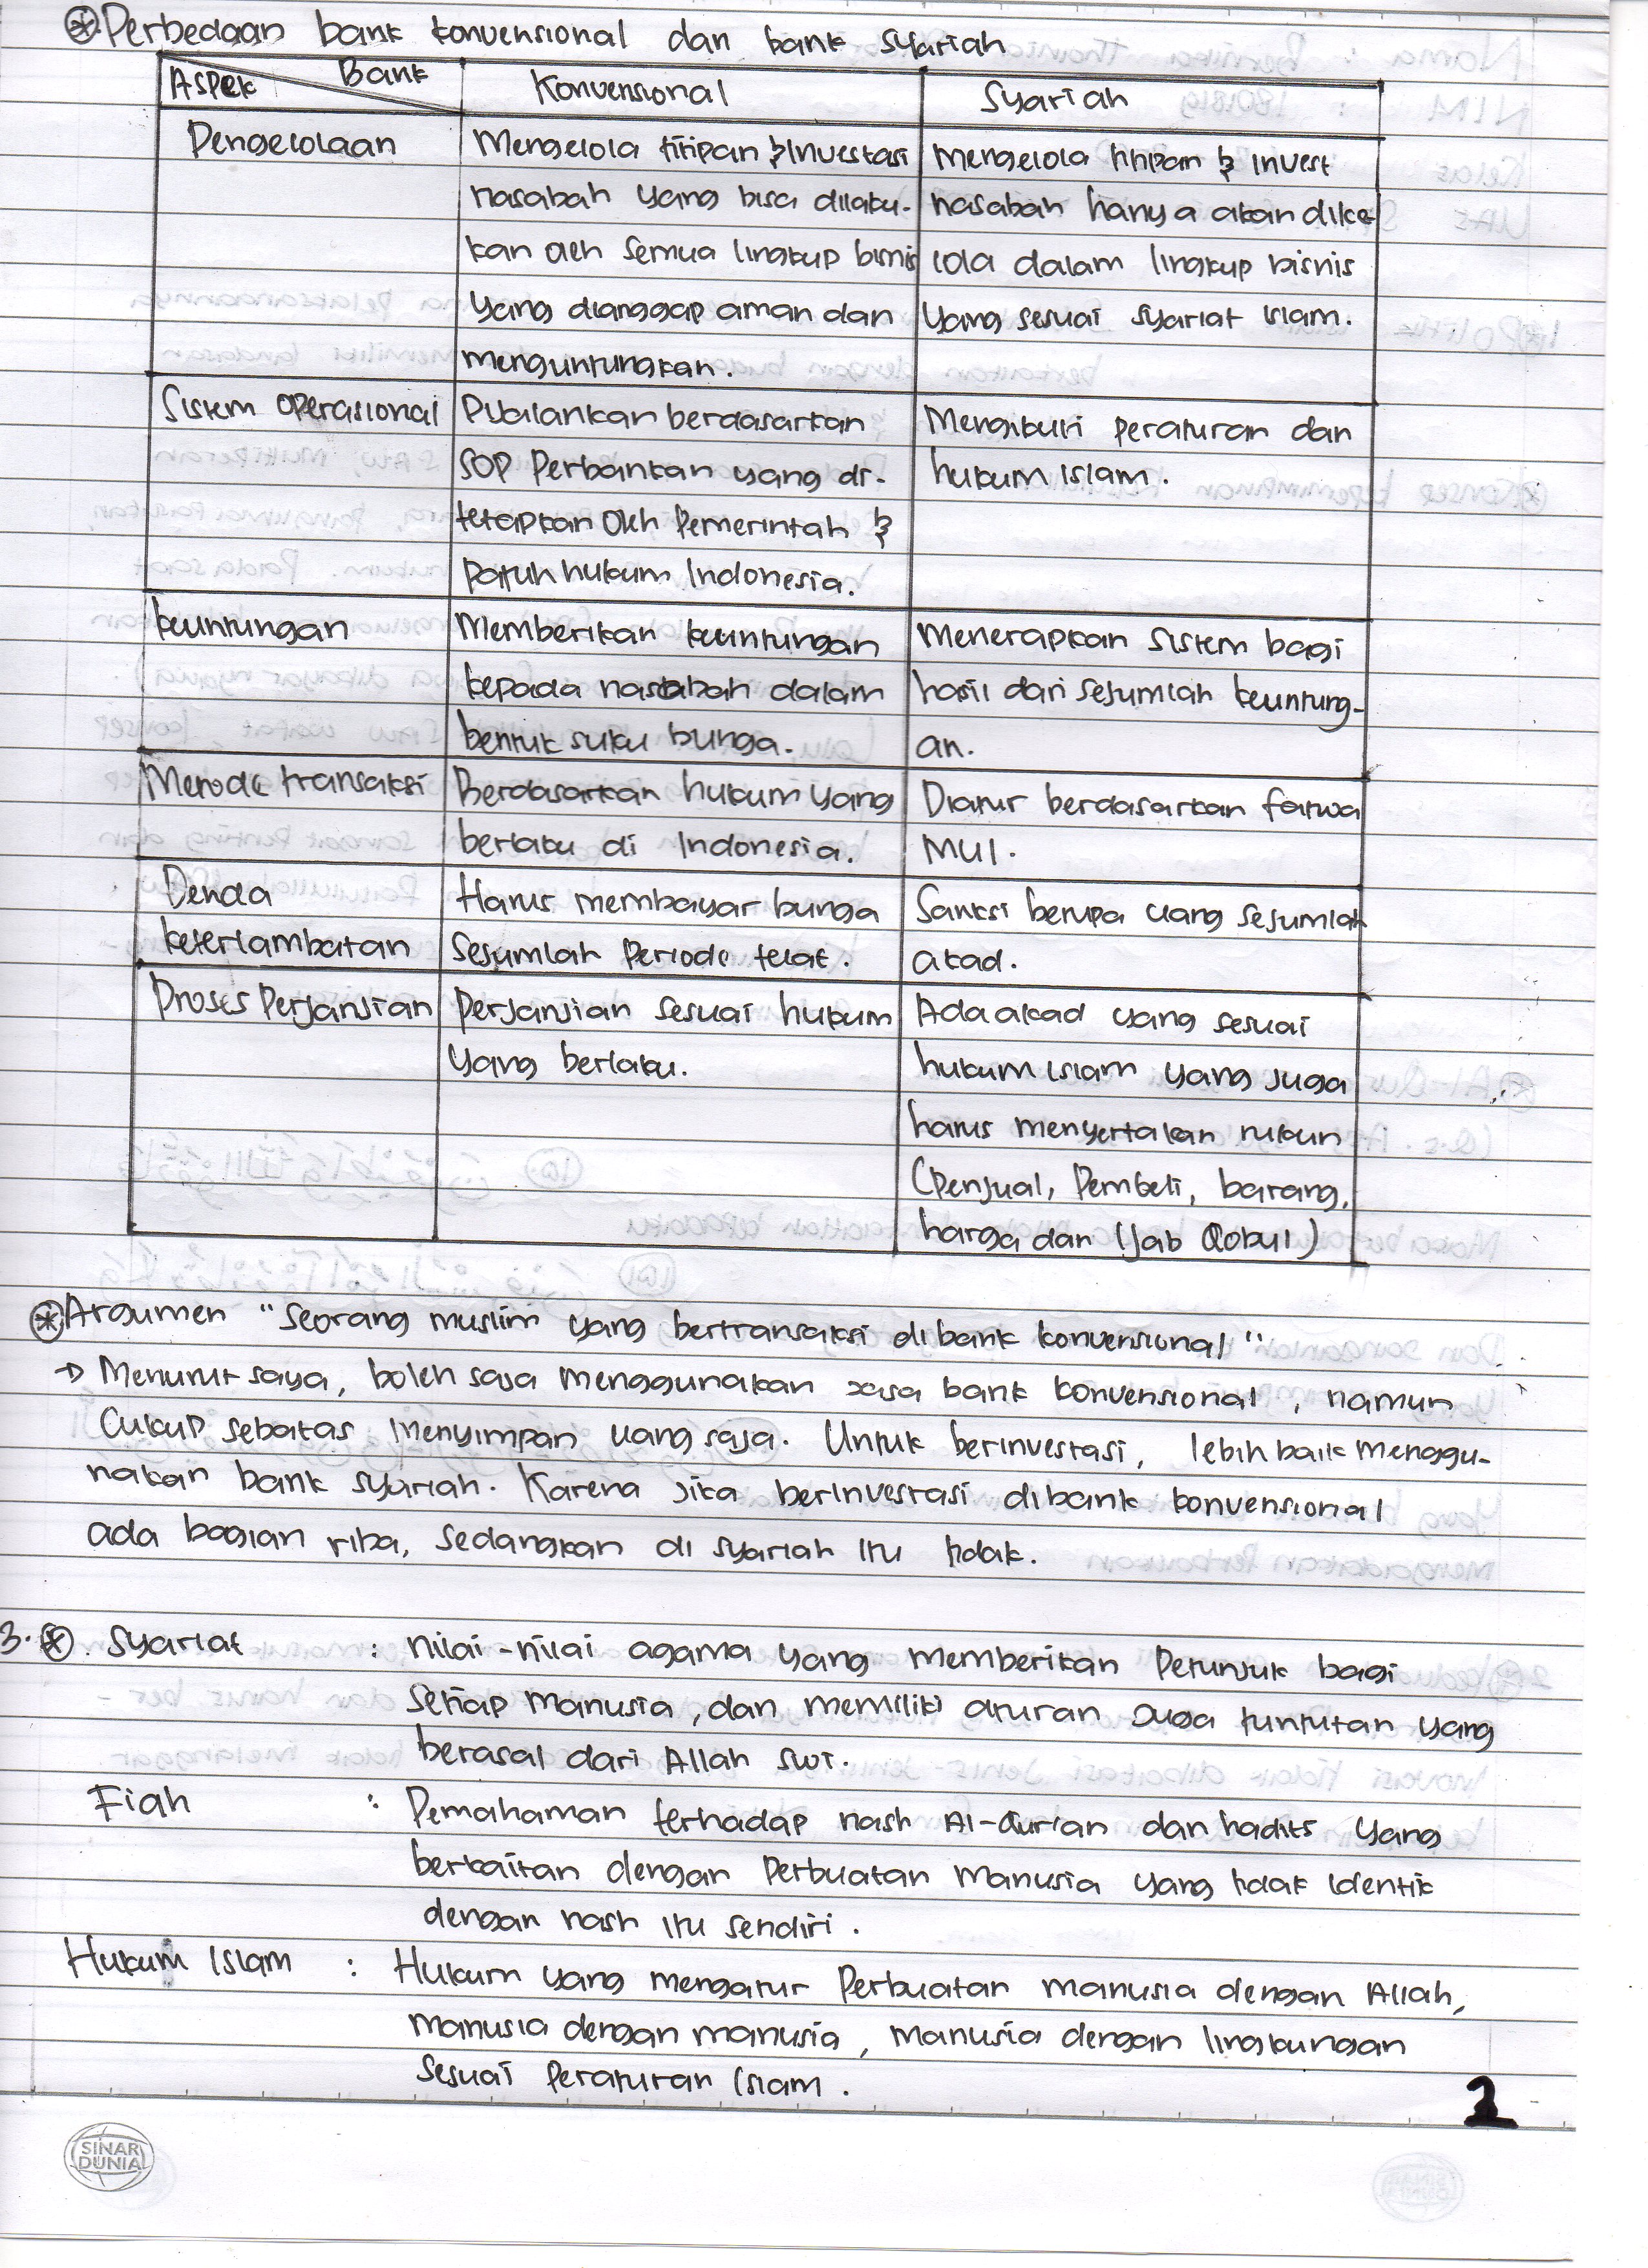 ⊛ Perbedaan bank konvensional dan bank syariah
Aspek Bank Konvensional Syariah
Pengelolaan
Mengelola titipan & Investasi
nasabah yang bisa dilaku-
kan oleh semua lingkup bisnis
yang dianggap aman dan
menguntungkan.
Mengelola titipan & invest
nasabah hanya akan dike-
lola dalam lingkup bisnis
yang sesuai syariat islam.
Sistem operasional
Dijalankan berdasarkan
SOP Perbankan yang di-
tetapkan oleh Pemerintah &
patuh hukum Indonesia.
Mengikuti peraturan dan
hukum islam.
keuntungan
Memberikan keuntungan
kepada nasabah dalam
bentuk suku bunga.
Menerapkan sistem bagi
hasil dari sejumlah keuntung-
an.
Metode transaksi
Berdasarkan hukum yang
berlaku di Indonesia.
Diatur berdasarkan fatwa
MUI.
Denda
keterlambatan
Harus membayar bunga
sejumlah periode telat.
Sanksi berupa uang sejumlah
akad.
Proses Perjanjian
Perjanjian sesuai hukum
yang berlaku.
Ada akad yang sesuai
hukum islam yang juga
harus menyertakan rukun
(Penjual, Pembeli, barang,
harga dan Ijab Qobul)
⊛ Argumen "Seorang muslim yang bertransaksi di bank konvensional"
→ Menurut saya, boleh saja menggunakan jasa bank konvensional, namun
cukup sebatas menyimpan uang saja. Untuk berinvestasi, lebih baik menggu-
nakan bank syariah. Karena jika berinvestasi di bank konvensional
ada bagian riba, sedangkan di syariah itu tidak.
3. ⊛. Syariat : nilai-nilai agama yang memberikan Petunjuk bagi
setiap manusia, dan memiliki aturan juga tuntutan yang
berasal dari Allah swt.
Fiqh : Pemahaman terhadap nash Al-Qur'an dan hadits yang
berkaitan dengan Perbuatan manusia yang tidak identik
dengan nash itu sendiri.
Hukum Islam : Hukum yang mengatur Perbuatan manusia dengan Allah,
manusia dengan manusia, manusia dengan lingkungan
sesuai Peraturan Islam.
2
SINAR
DUNIA